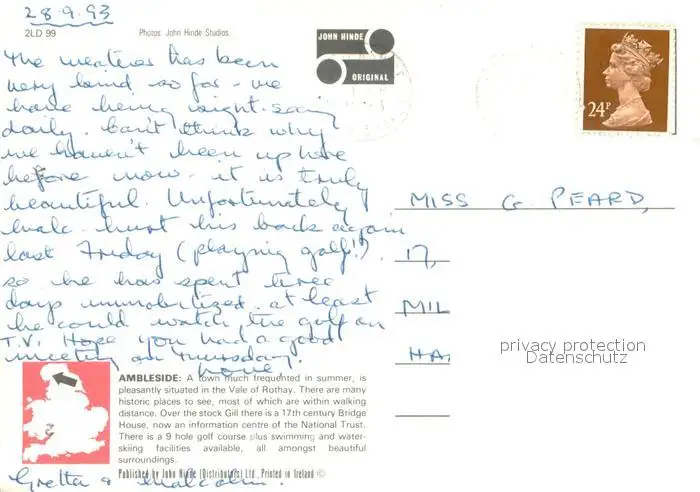 28.9.93
2LD 99
Photos: John Hinde Studios.
JOHN HINDE
ORIGINAL
24P
The weather has been
very kind so far - we
have being sight-seeing
daily. Can't think why
we haven't been up here
before now - it is truly
beautiful. Unfortunately
Malc. hurt his back again
last Friday (playing golf!).
so he has spent three
days immobilized. at least
he could watch the golf on
T.V. Hope you had a good
meeting on Thursday.
love
Gretta & Malcolm.
MISS G. PEARD,
17,
MIL
HA
privacy protection
Datenschutz
AMBLESIDE: A town much frequented in summer, is
pleasantly situated in the Vale of Rothay. There are many
historic places to see, most of which are within walking
distance. Over the stock Gill there is a 17th century Bridge
House, now an information centre of the National Trust.
There is a 9 hole golf course plus swimming and water-
skiing facilities available, all amongst beautiful
surroundings.
Published by John Hinde (Distributors) Ltd., Printed in Ireland ©